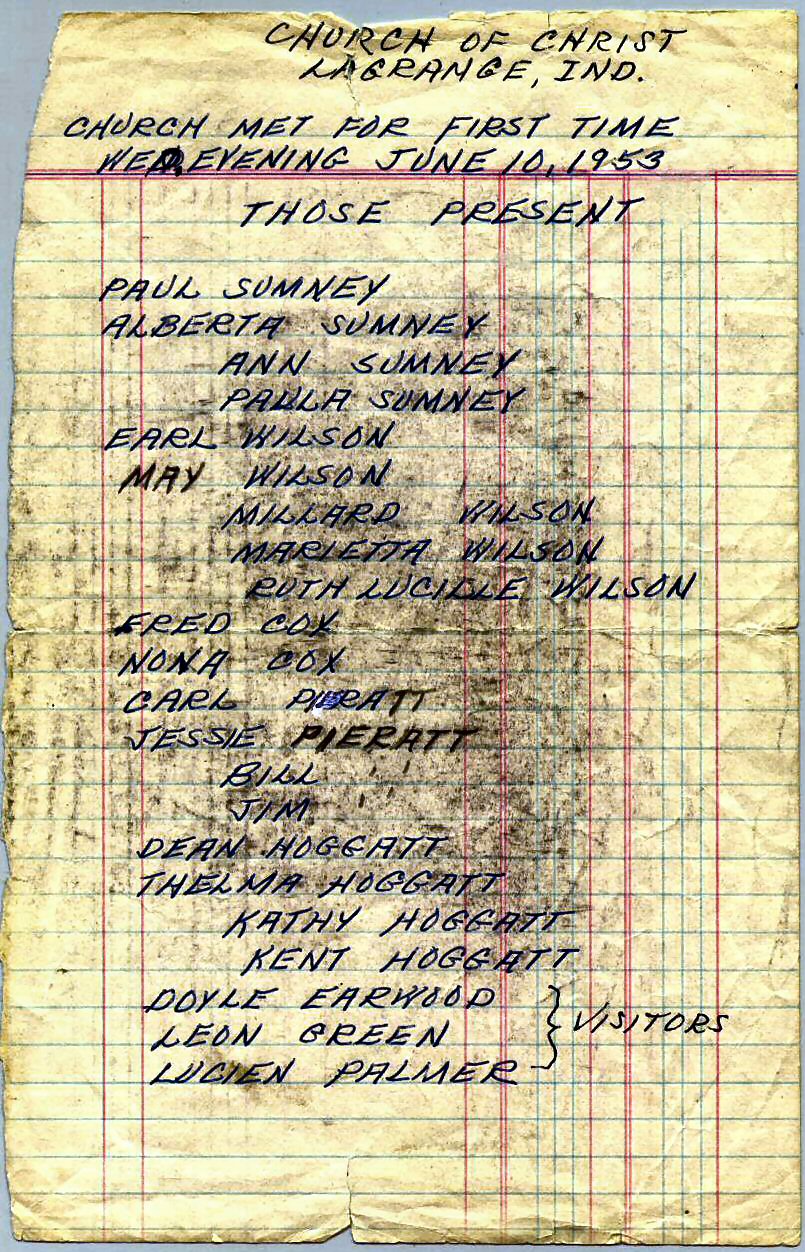 CHURCH OF CHRIST
LAGRANGE, IND.
CHURCH MET FOR FIRST TIME
WED, EVENING JUNE 10, 1953
THOSE PRESENT
PAUL SUMNEY
ALBERTA SUMNEY
ANN SUMNEY
PAULA SUMNEY
EARL WILSON
MAY WILSON
MILLARD WILSON
MARLETTA WILSON
RUTH LUCILLE WILSON
FRED COX
NONA COX
CARL PIERATT
JESSIE PIERATT
BILL
JIM
DEAN HOGGATT
THELMA HOGGATT
KATHY HOGGATT
KENT HOGGATT
DOYLE EARWOOD
LEON GREEN
LUCIEN PALMER
VISITORS